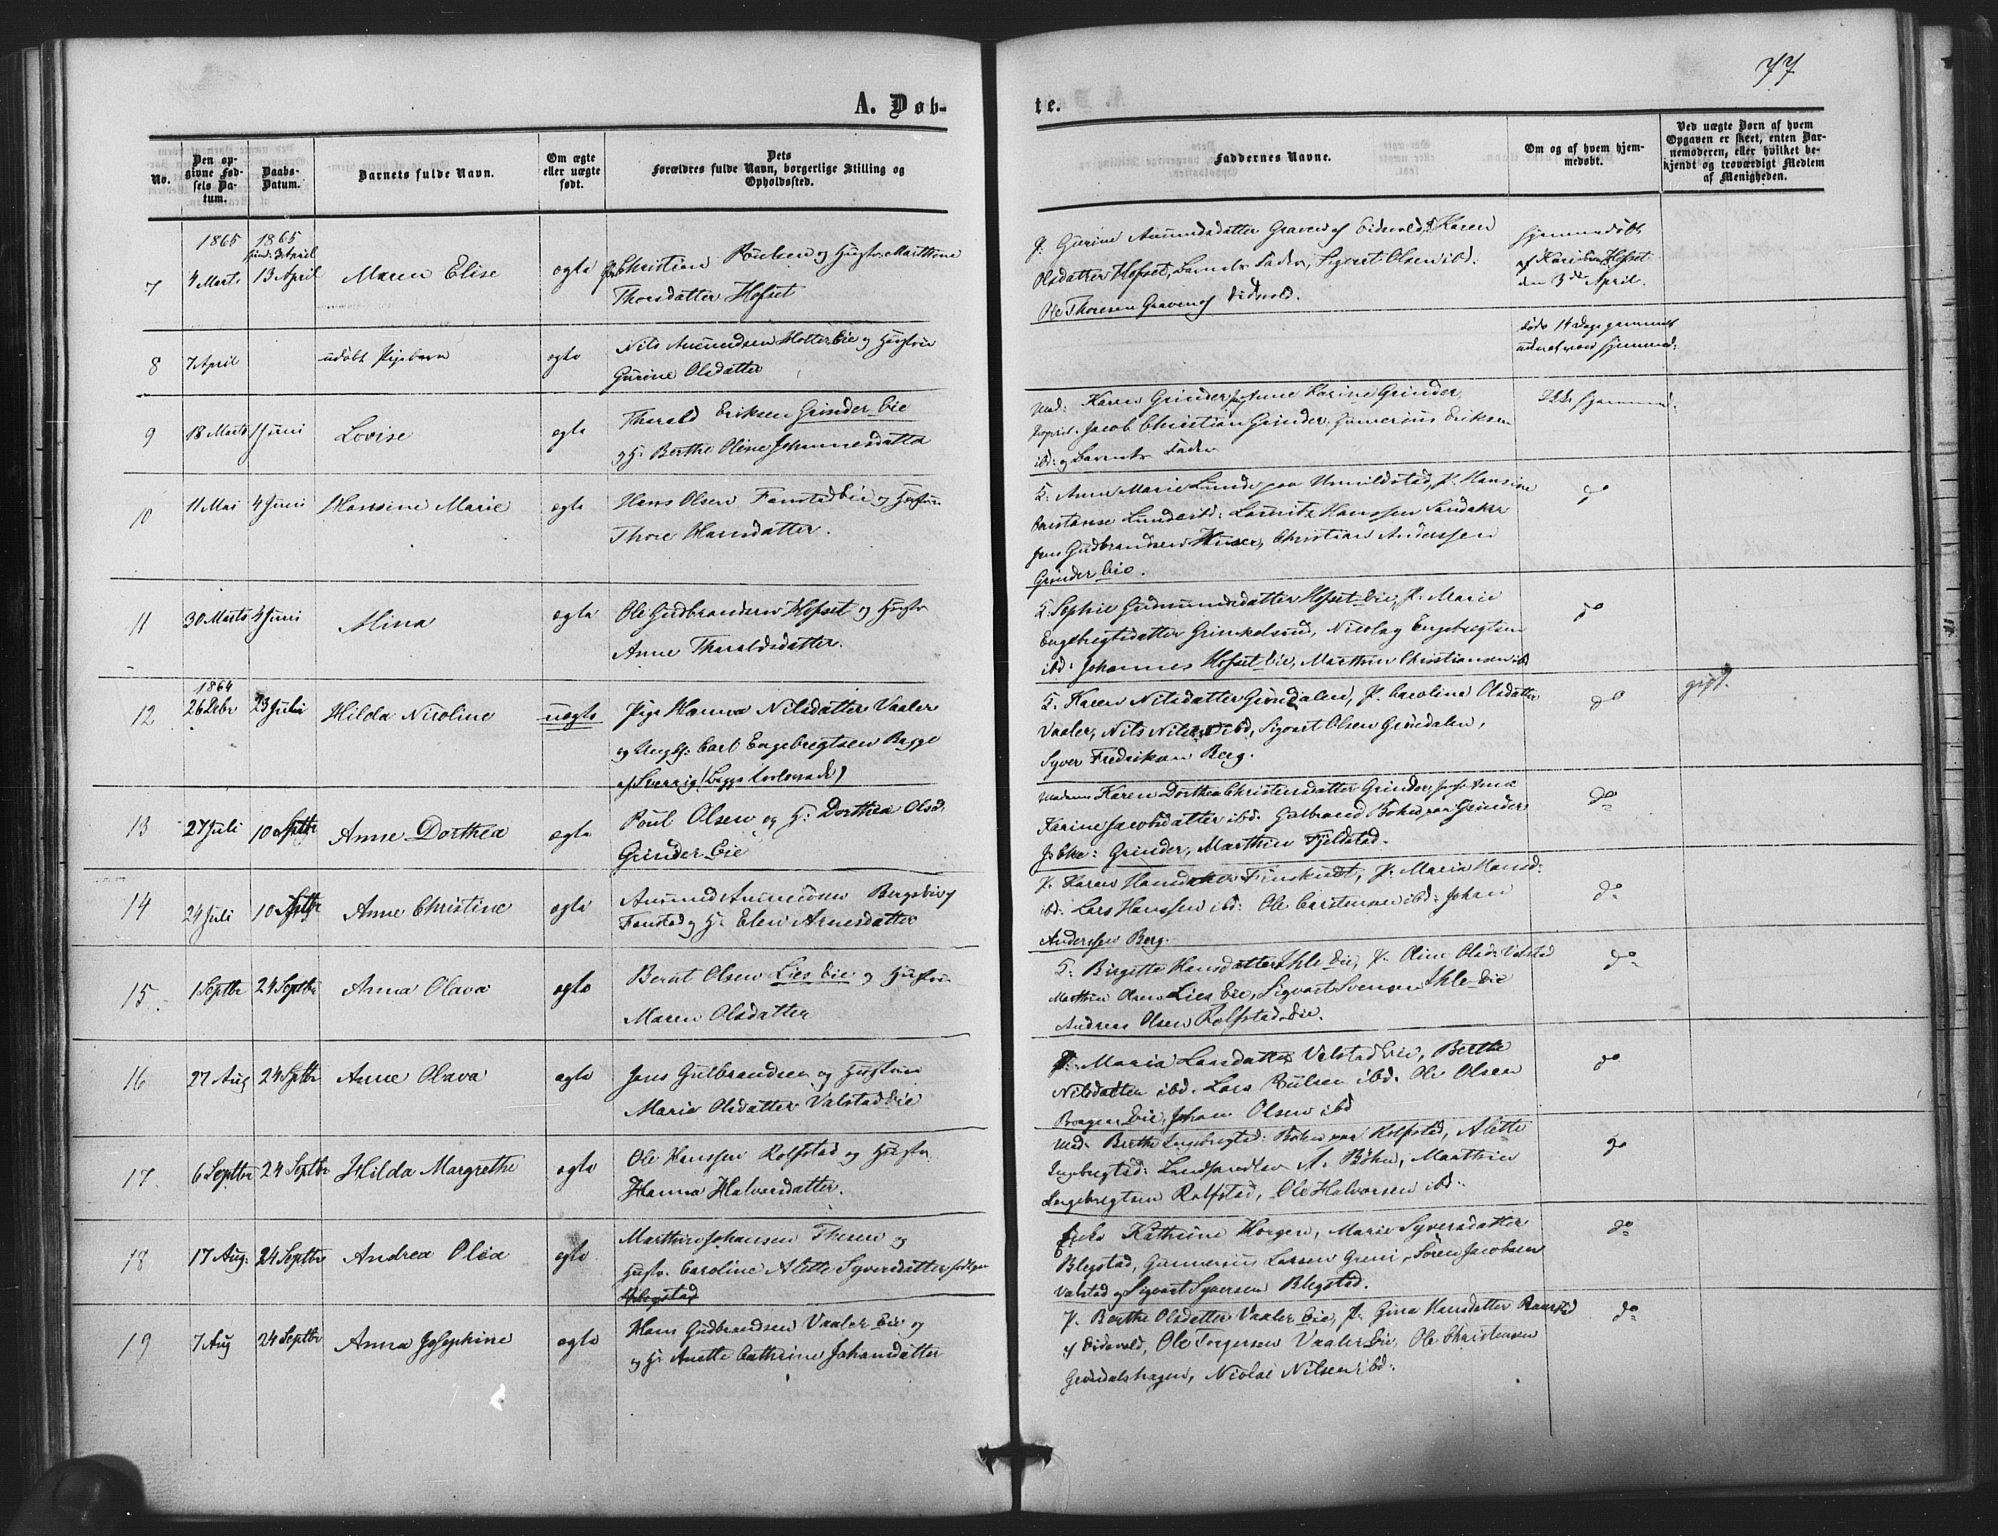 77
A. Døb-
te.
No.
Den op-
givne Fød-
sels Da-
tum.
Daabs-
Datum.
Barnets fulde Navn.
Om ægte
eller uægte
født.
Dets
Forældres fulde Navn, borgerlige Stilling og
Opholdssted.
Faddernes Navne.
Om og af hvem hjem-
medøbt.
Ved uægte Børn af hvem
Opgaven er skeet, enten Bar-
nemoderen, eller hvilket be-
kjendt og troværdigt Medlem
af Menigheden.
1865
1865
3 April
7
4 Marts
13 April
Maren Elise
ægte
Christian Paulsen og Hustr. Marthine
Thorsdatter Hofset
P. Gurine Amundsdatter Graven af Eidsvold, Karen
Olsdatter Hofset, Barnets Fader, Sigvart Olsen ibd:
Ole Thoresen Graven af Eidsvold.
hjemmedøbt
af Kari Hofset
den 3de April.
8
7 April
udøbt Pigebarn
ægte
Nils Amundsen Holter Eie og Hustru
Gurine Olsdatter
døde 14 Dage gammel
uden at være hjemmed:
9
18 Marts
1 Juni
Lovise
ægte
Tharald Eriksen Grinder Eie
og H: Berthe Oline Johannesdatter
Mad: Karen Grinder, Anne Karine Grinder,
Jacob Christian Grinder, Gunerius Eriksen
ibd: og Barnets Fader
Ikke hjemmed:
10
11 Mai
4 Juni
Hansine Marie
ægte
Hans Olsen Fanstad Eie og Hustru
Thore Hansdatter.
G: Anne Marie Lunde paa Unnildstad, P: Hansine
Constanse Lunde ibd: Lauritz Hanssen Sandaker
Jens Gudbrandsen Huser, Christian Anderssen
Grinder Eie.
do
11
30 Marts
4 Juni
Mina
ægte
Ole Gudbrandsen Hofset og Hustr.
Anne Tharaldsdatter.
G: Sophie Gudmundsdatter Hofset Eie, P: Marie
Engebregtsdatter Grinkelsrud, Nicolay Engebregtsen
ibd: Johannes Hofset Eie, Marthin Christiansen ibd
do
1864
12
26 Febr
23 Juli
Hilda Nicoline
uægte
Pige Hanna Nilsdatter Vaaler
og Ungk: Carl Engebregtsen Bagge
af Sverrig
G: Karen Nilsdatter Grindalen, P: Caroline Olsdatter
Vaaler, Nils Nilsen ibd, Sigvart Olsen Grindalen,
Syver Fredriksen Berg.
do
gift.
13
27 Juli
10 Septbr
Anne Dorthea
ægte
Poul Olsen og H: Dorthea Olsd.
Grinder Eie
Madame Karen Dorthea Christensdatter Grinder, Anna
Karine Jacobsdatter ibd. Gulbrand Bøhn paa Grinder
Grinder, Marthin Fjeldstad.
do
14
24 Juli
10 Septbr
Anne Christine
ægte
Amund Amundsen Bergsbie af
Fanstad og H: Elen Arnesdatter
P. Karen Hansdatter Finskudt, P: Maria Hansd:
ibd: Lars Hanssen ibd: Ole Carstensen ibd: Johan
Anderssen Berg.
do
15
1 Septbr
24 Septbr
Anna Olava
ægte
Bernt Olsen Lies Eie og Hustru
Maren Olsdatter
G: Birgitte Hansdatter Ihle Eie, P. Oline Olsd: Valstad
Marthin Olsen Lies Eie, Sigvart Svensen Ihle Eie
Andreas Olsen Rolfstad Eie.
do
16
27 Aug
24 Septbr
Anne Olava
ægte
Jens Gulbrandsen og Hustru
Marie Olsdatter Valstad Eie
P: Maria Larsdatter Valstad Eie, Berthe
Nilsdatter ibd. Lars Poulsen ibd. Ole Olsen
Brogen Eie, Johan Olsen ibd
do
17
6 Septbr
24 Septbr
Hilda Margrethe
ægte
Ole Hanssen Rolfstad og Hustr.
Hanna Halvorsdatter.
Mad: Berthe Ingebregtsd: Bøhn paa Rolfstad, Alette
Ingebregtsd: Landhandler A. Bøhn, Marthin
Ingebregtsen Rolfstad, Ole Halvorsen ibd:
do
18
17 Aug.
24 Septbr
Andrea Olea
ægte
Marthin Johansen Theren og
Hustr. Caroline Alette Syversdatter
Blegstad
Enke Kathrine Horgen, Marie Syversdatter
Blegstad, Gunnerius Larsen Greni, Søren Jacobsen
Valstad og Sigvart Syversen Blegstad.
do
19
7 Aug
24 Septbr
Anna Josephine
ægte
Hans Gudbrandsen Vaaler Eie og
og H: Anette Cathrine Johansdatter
P. Berthe Olsdatter Vaaler Eie, P. Gina Hansdatter
af Eidsvold, Ole Torgersen Vaaler Eie, Ole Christensen
Grindalshagen, Nicolai Nilsen ibd:
do